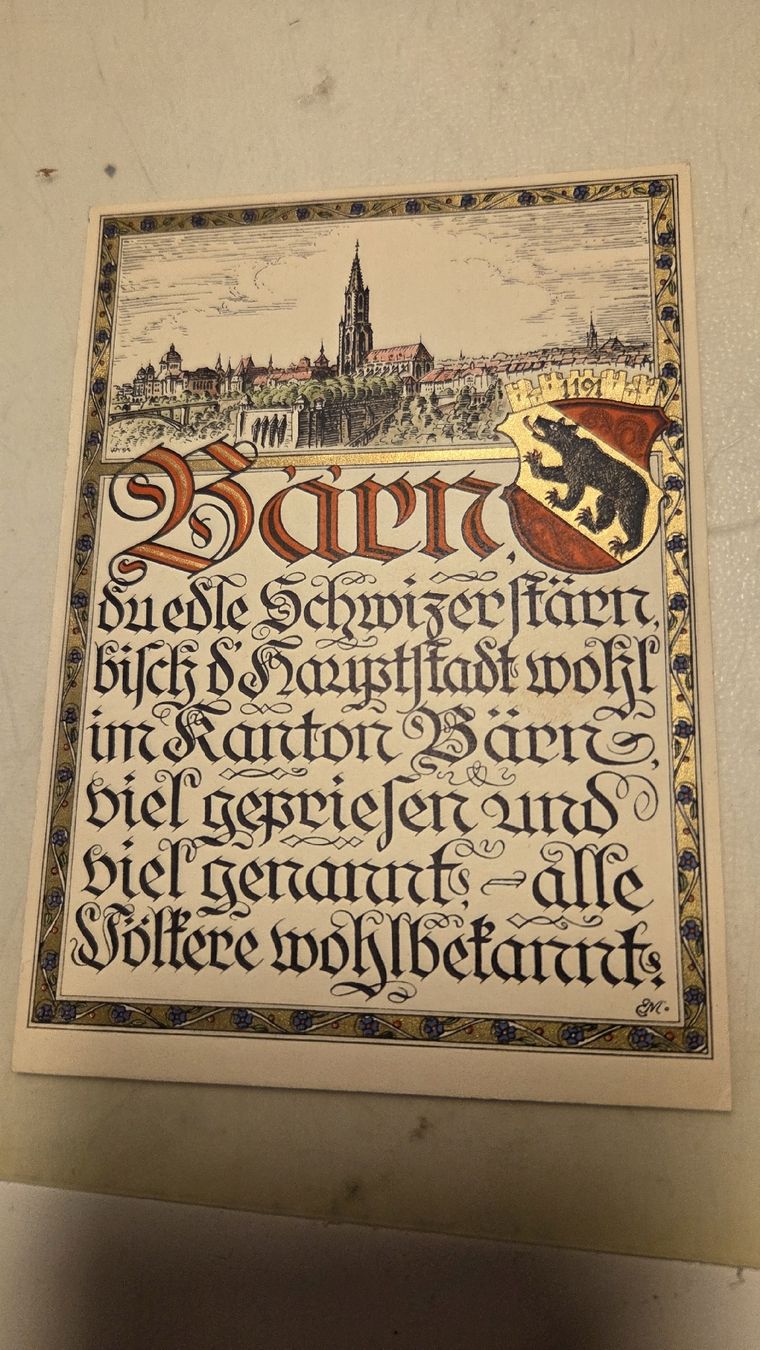 1191
Bärn,
du edle Schwizerstärn,
bisch d'Hauptstadt wohl
im Kanton Bärn,
viel gepriesen und
viel genannt, – alle
Völkere wohlbekannt.
EM.